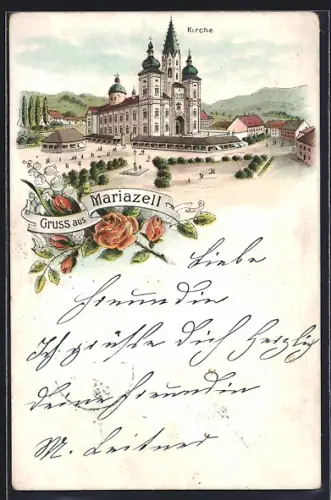 Kirche
Gruss aus Mariazell
Liebe
Freundin
Ich grüße Dich Herzlich
deine Freundin
M. Leitner